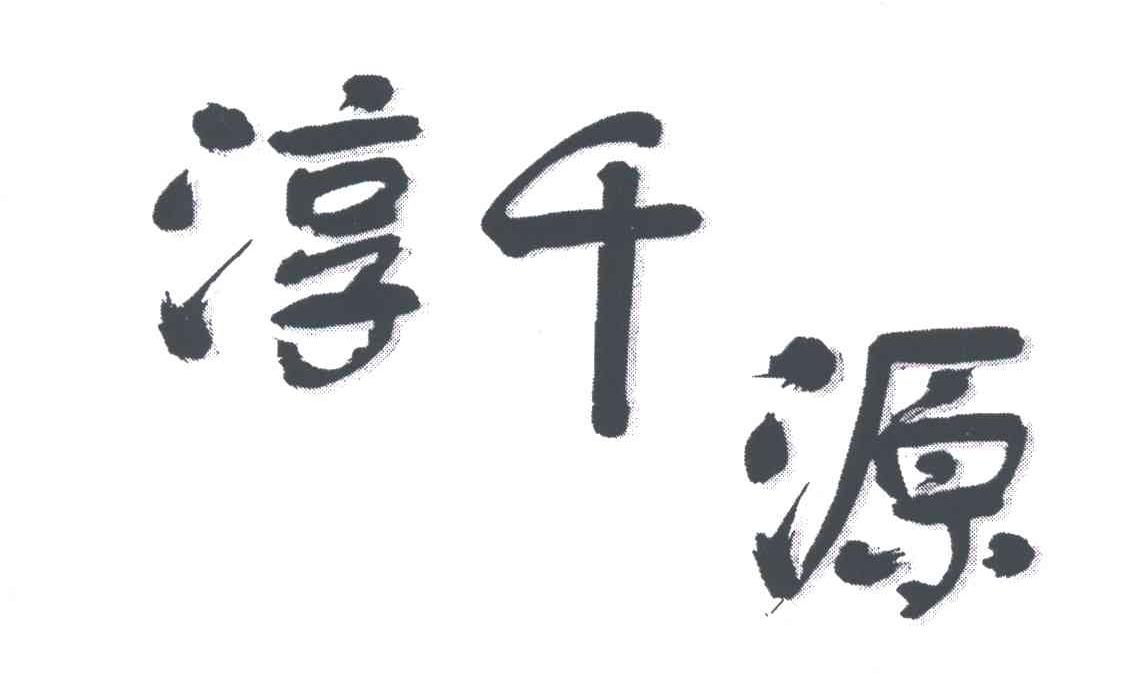 淳千源